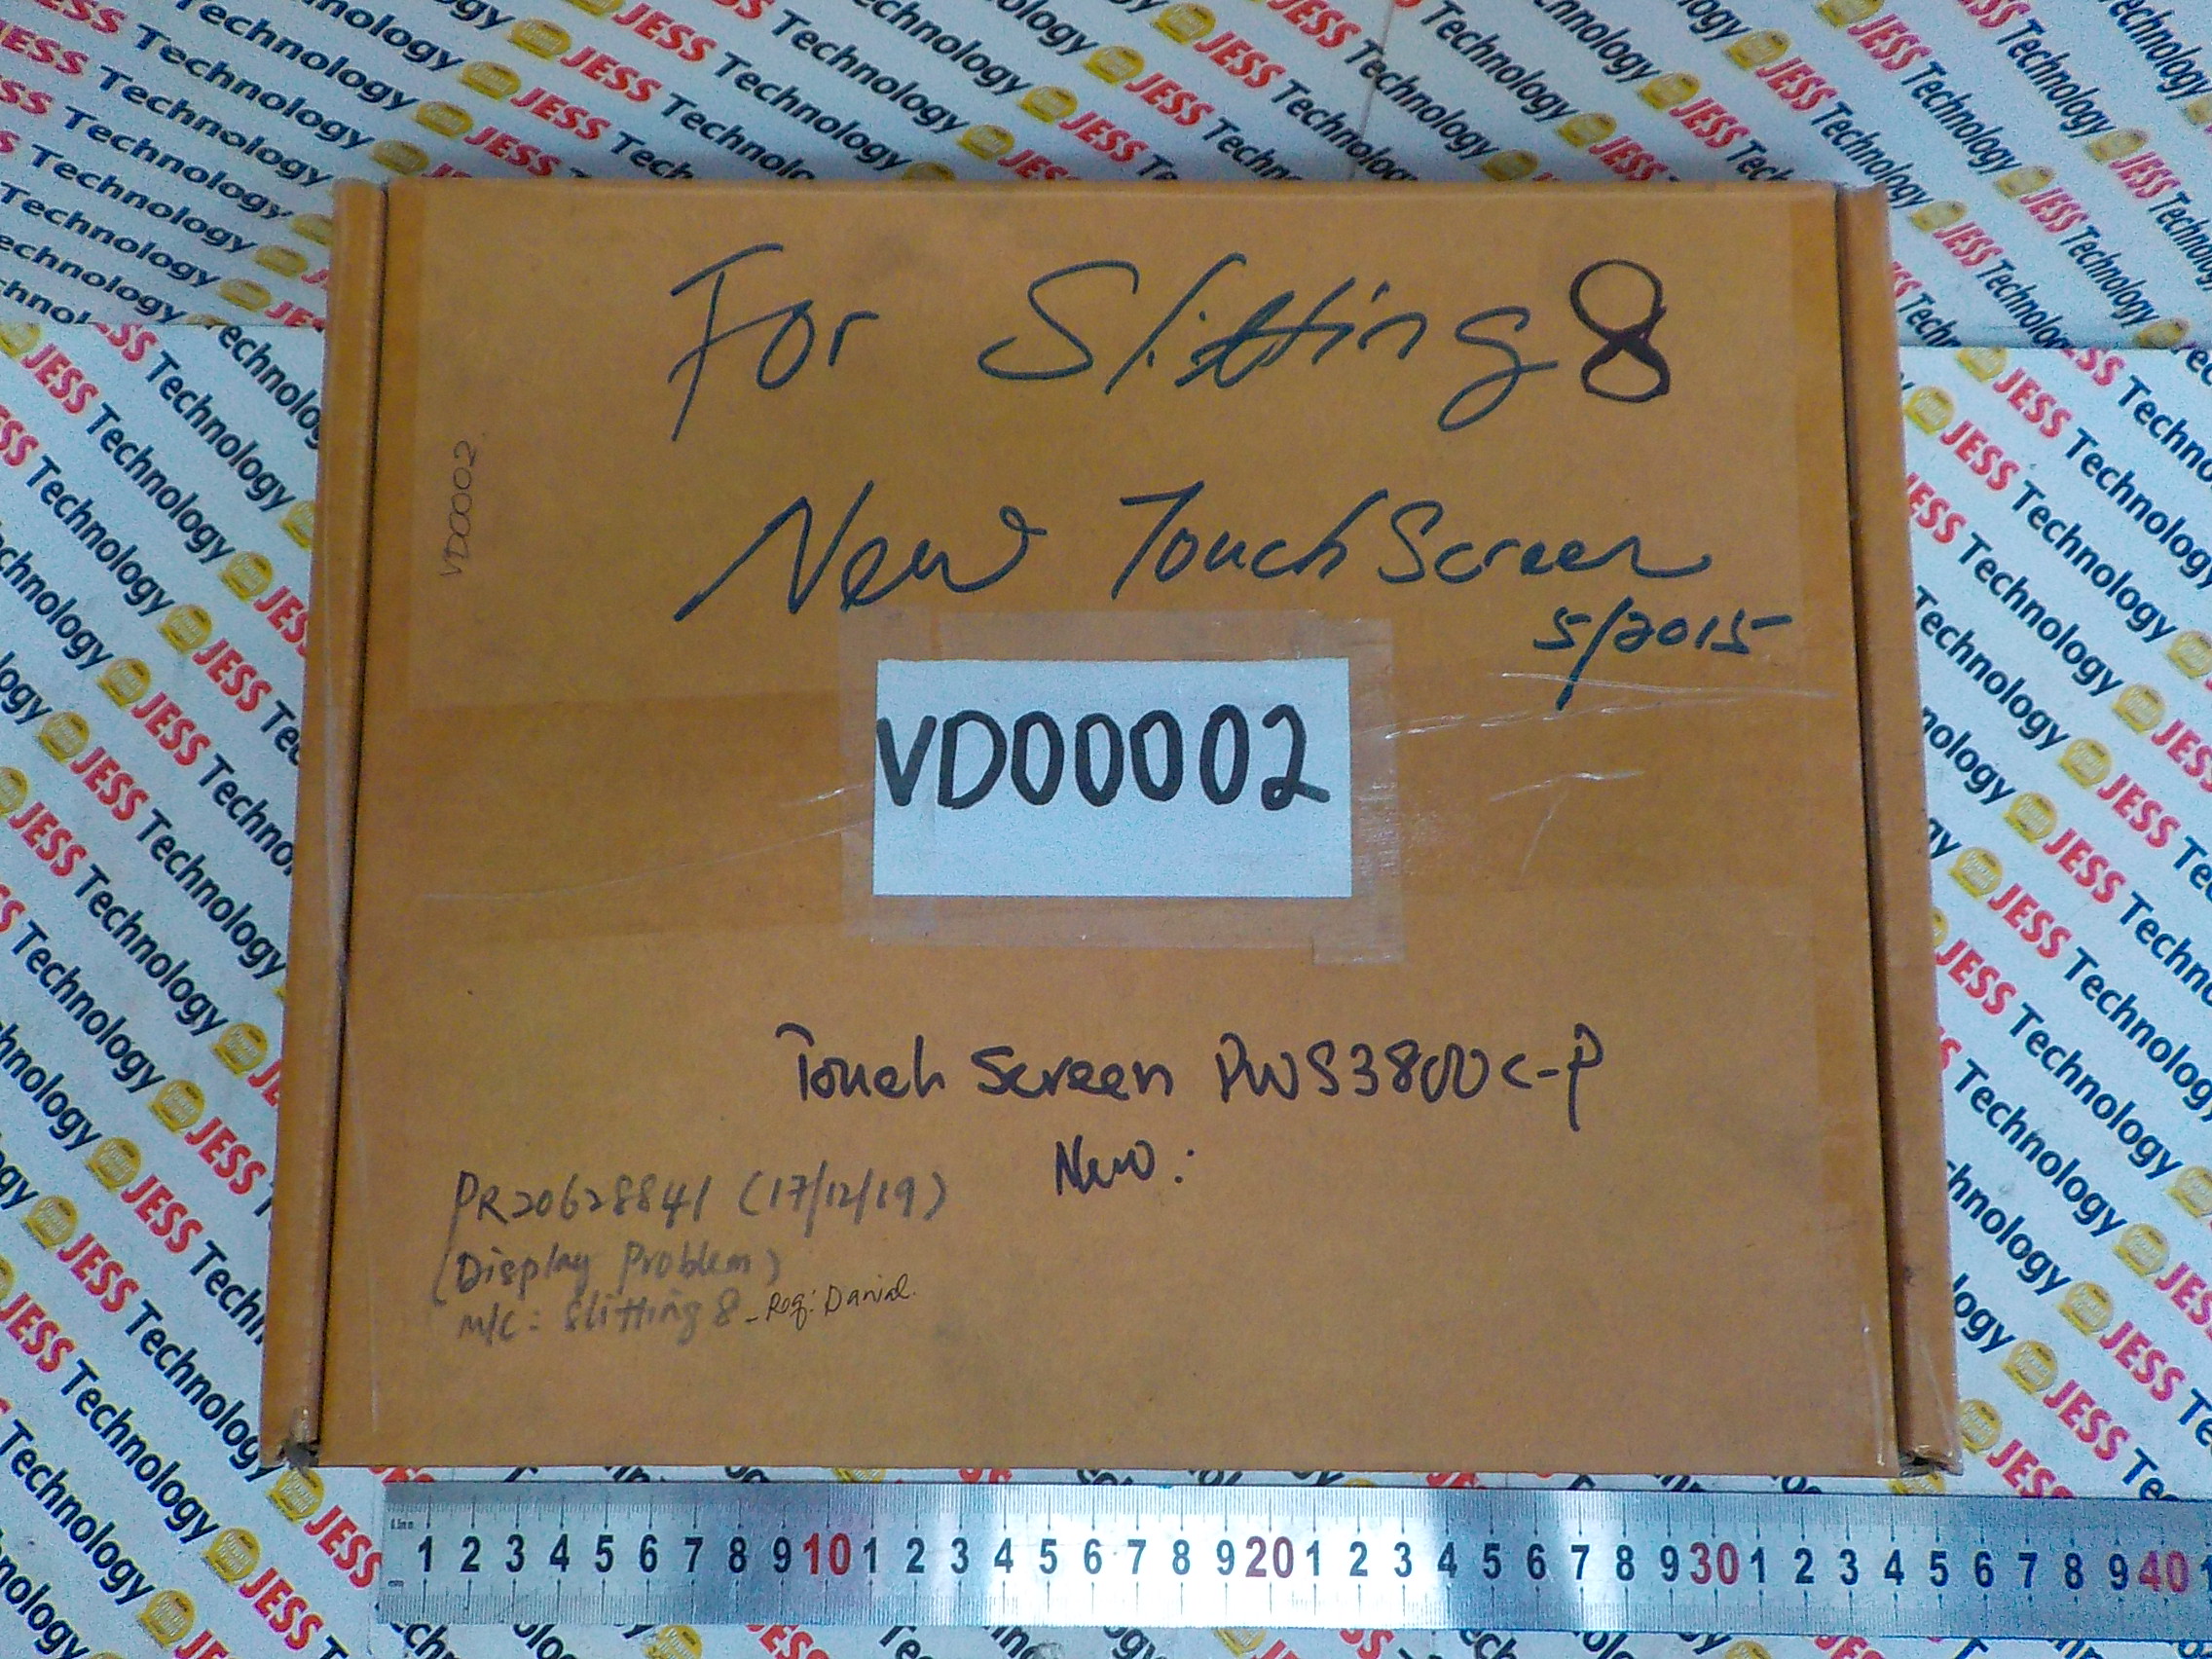 For Slitting 8
VD00002
New Touch Screen
5/2015
VD00002
Touch Screen PWS3800C-P
New:
PR20628841 (17/12/19)
(Display Problem)
M/C: Slitting 8 - Req: Danial.
JESS Technology
0.5mm
1 2 3 4 5 6 7 8 9 10 1 2 3 4 5 6 7 8 9 20 1 2 3 4 5 6 7 8 9 30 1 2 3 4 5 6 7 8 9 40 1